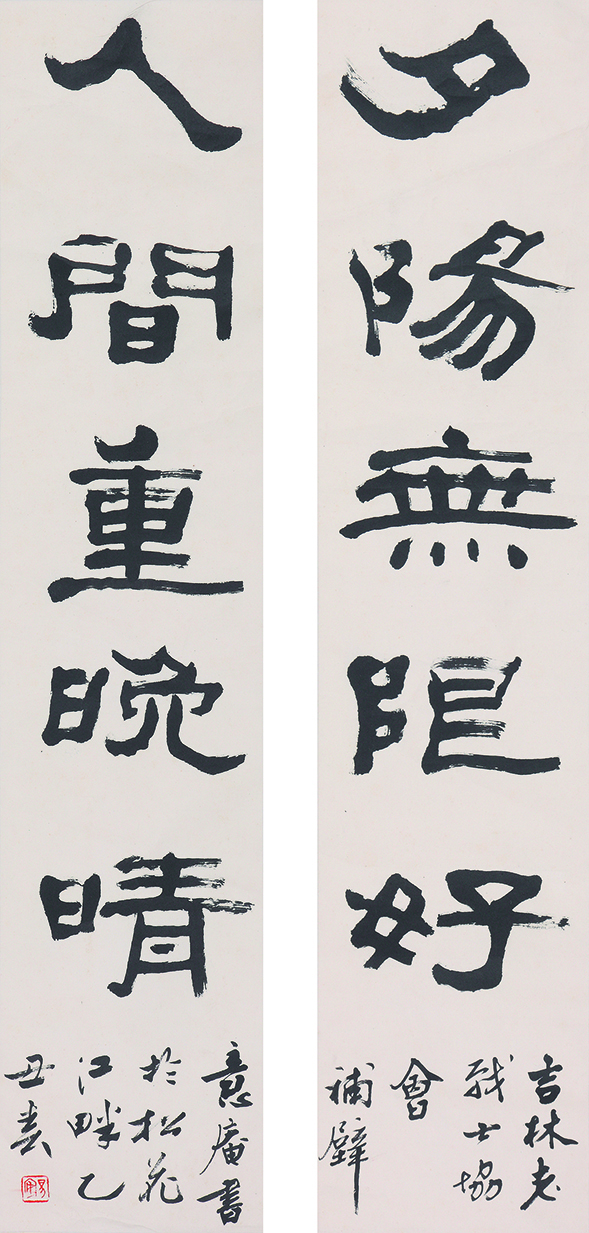 夕陽無限好
吉林老
戰士協
會
補壁
人間重晚晴
意庵書
於松花
江畔乙
丑春